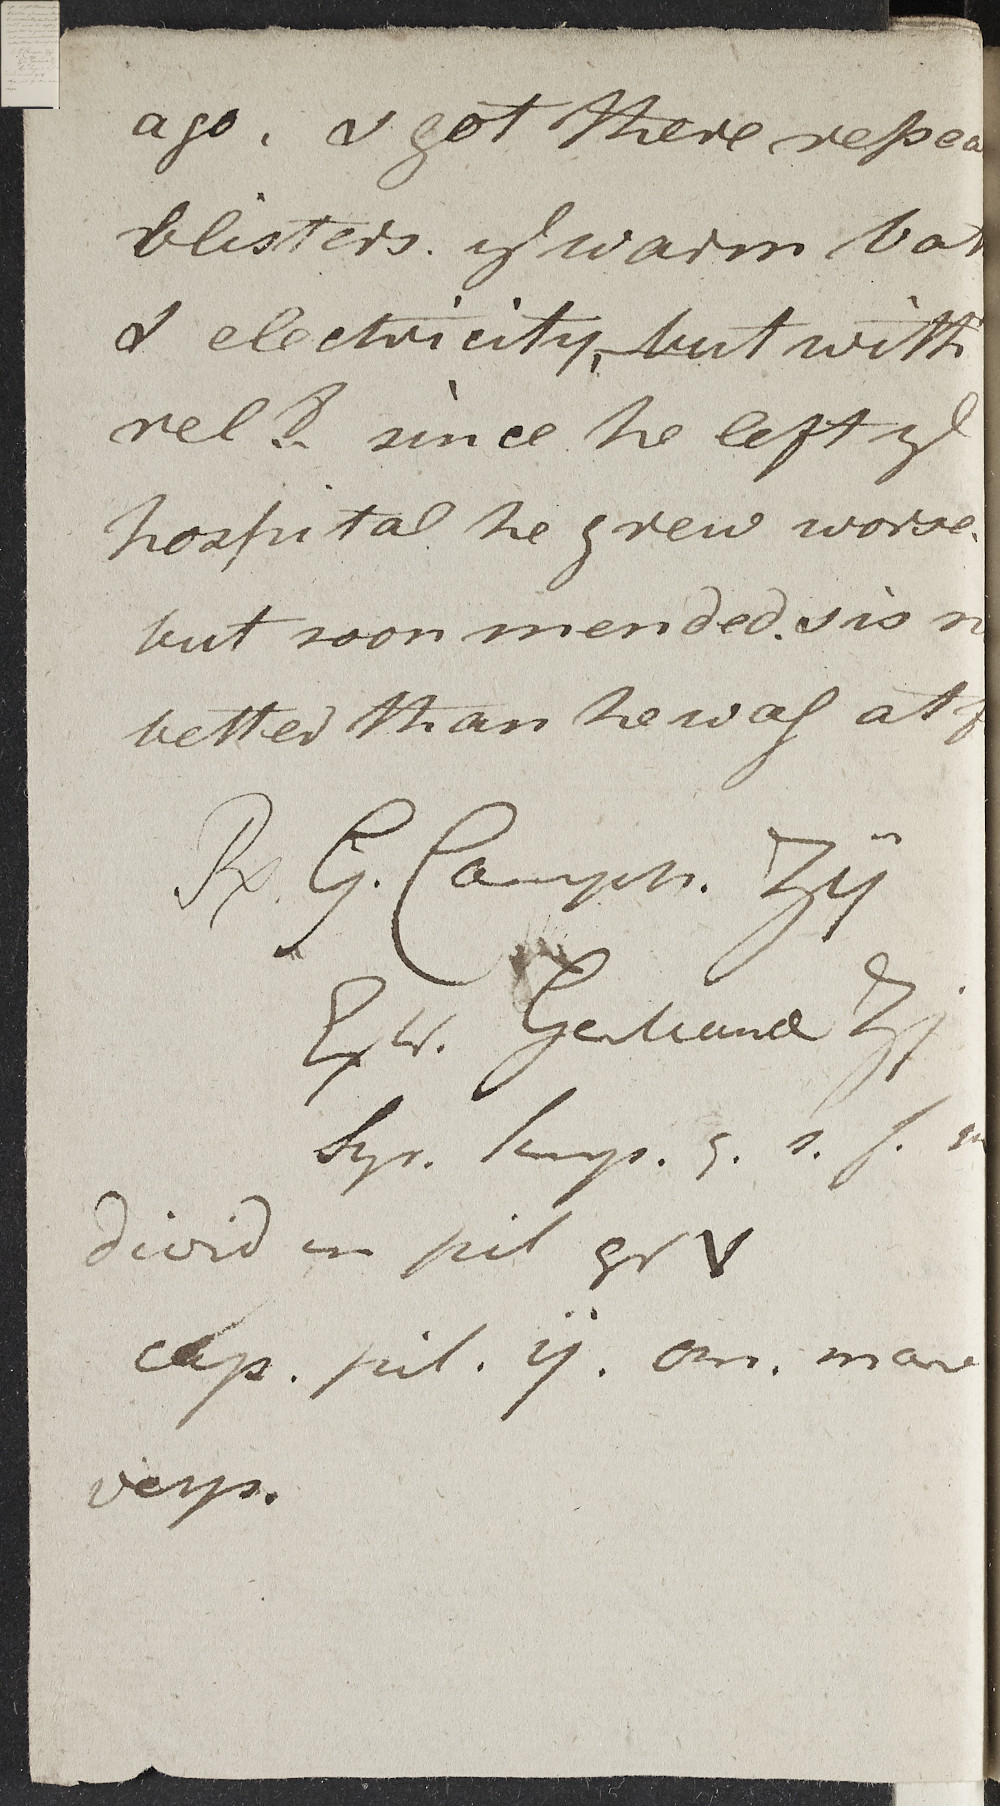 ago. & got there repea
blisters. ye warm bat
& electricity, but with
rel since he left ye
hospital he grew worse.
but soon mended. & is n
better than he was at f
Rx. G. Camph. ʒij
Extr. Gentianae ʒj
Syr. simp. q. s. f. m
divid in pil gr V
cap. pil. ij. om. mane
vesp.